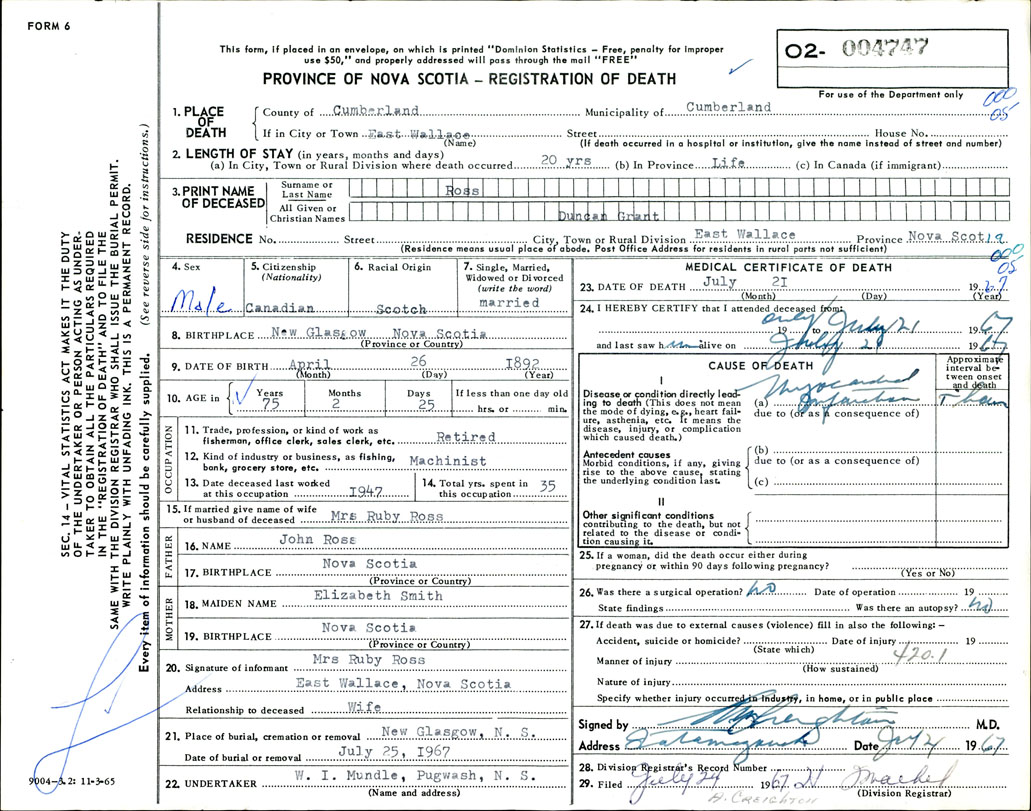 FORM 6
This form, if placed in an envelope, on which is printed "Dominion Statistics - Free, penalty for improper
use $50," and properly addressed will pass through the mail "FREE"
PROVINCE OF NOVA SCOTIA - REGISTRATION OF DEATH
O2- 004747
For use of the Department only
000
05
SEC. 14 - VITAL STATISTICS ACT MAKES IT THE DUTY
OF THE UNDERTAKER OR PERSON ACTING AS UNDER-
TAKER TO OBTAIN ALL THE PARTICULARS REQUIRED
IN THE "REGISTRATION OF DEATH" AND TO FILE THE
SAME WITH THE DIVISION REGISTRAR WHO SHALL ISSUE THE BURIAL PERMIT.
WRITE PLAINLY WITH UNFADING INK. THIS IS A PERMANENT RECORD.
Every item of information should be carefully supplied. (See reverse side for instructions.)
1. PLACE OF DEATH
County of Cumberland Municipality of Cumberland
If in City or Town East Wallace Street House No.
(Name) (If death occurred in a hospital or institution, give the name instead of street and number)
2. LENGTH OF STAY (in years, months and days)
(a) In City, Town or Rural Division where death occurred 20 yrs (b) In Province Life (c) In Canada (if immigrant)
3. PRINT NAME OF DECEASED
Surname or Last Name Ross
All Given or Christian Names Duncan Grant
RESIDENCE No. Street City, Town or Rural Division East Wallace Province Nova Scotia
(Residence means usual place of abode. Post Office Address for residents in rural parts not sufficient)
000
05
4. Sex Male
5. Citizenship (Nationality) Canadian
6. Racial Origin Scotch
7. Single, Married, Widowed or Divorced (write the word) married
8. BIRTHPLACE New Glasgow Nova Scotia
(Province or Country)
9. DATE OF BIRTH April 26 1892
(Month) (Day) (Year)
10. AGE in Years 75 Months 2 Days 25 If less than one day old hrs. or min.
OCCUPATION
11. Trade, profession, or kind of work as fisherman, office clerk, sales clerk, etc. Retired
12. Kind of industry or business, as fishing, bank, grocery store, etc. Machinist
13. Date deceased last worked at this occupation 1947
14. Total yrs. spent in this occupation 35
15. If married give name of wife or husband of deceased Mrs Ruby Ross
FATHER
16. NAME John Ross
17. BIRTHPLACE Nova Scotia
(Province or Country)
MOTHER
18. MAIDEN NAME Elizabeth Smith
19. BIRTHPLACE Nova Scotia
(Province or Country)
20. Signature of informant Mrs Ruby Ross
Address East Wallace, Nova Scotia
Relationship to deceased Wife
21. Place of burial, cremation or removal New Glasgow, N. S.
Date of burial or removal July 25, 1967
22. UNDERTAKER W. I. Mundle, Pugwash, N. S.
(Name and address)
9004-3.2: 11-3-65
MEDICAL CERTIFICATE OF DEATH
23. DATE OF DEATH July 21 1967
(Month) (Day) (Year)
24. I HEREBY CERTIFY that I attended deceased from:
only 19 to July 21 1967
and last saw him alive on July 21 1967
CAUSE OF DEATH
Approximate interval between onset and death
I
Disease or condition directly leading to death (This does not mean the mode of dying, e.g., heart failure, asthenia, etc. It means the disease, injury, or complication which caused death.)
(a) Myocardial Infarction
due to (or as a consequence of)
Antecedent causes
Morbid conditions, if any, giving rise to the above cause, stating the underlying condition last.
(b)
due to (or as a consequence of)
(c)
II
Other significant conditions
contributing to the death, but not related to the disease or condition causing it.
25. If a woman, did the death occur either during
pregnancy or within 90 days following pregnancy?
(Yes or No)
26. Was there a surgical operation? no Date of operation 19
State findings Was there an autopsy? no
27. If death was due to external causes (violence) fill in also the following: -
Accident, suicide or homicide? Date of injury 19
(State which)
420.1
Manner of injury
(How sustained)
Nature of injury
Specify whether injury occurred in industry, in home, or in public place
Signed by Creighton M.D.
Address Tatamagouche Date July 1967
28. Division Registrar's Record Number
29. Filed July 24 1967
(Division Registrar)
A. CREIGHTON